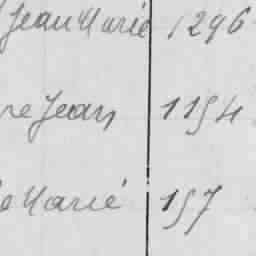 Jean Marie 1296
re Jean 1154
e Marie 157